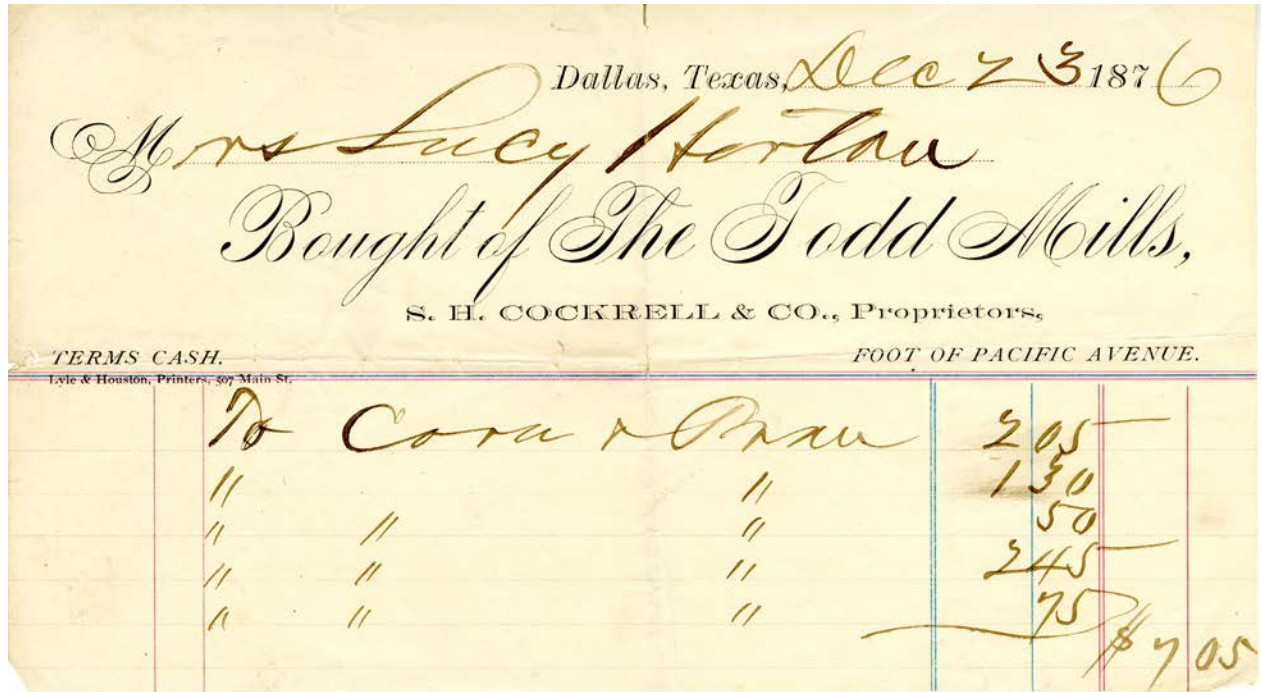 Dallas, Texas, Dec 23 1876
Mrs Lucy Horton
Bought of The Todd Mills,
S. H. COCKRELL & CO., Proprietors,
TERMS CASH. FOOT OF PACIFIC AVENUE.
Lyle & Houston, Printers, 507 Main St.
To Corn & Bran 2 05
" " 1 30
" " " 50
" " " 2 45
" " " 75
$7 05